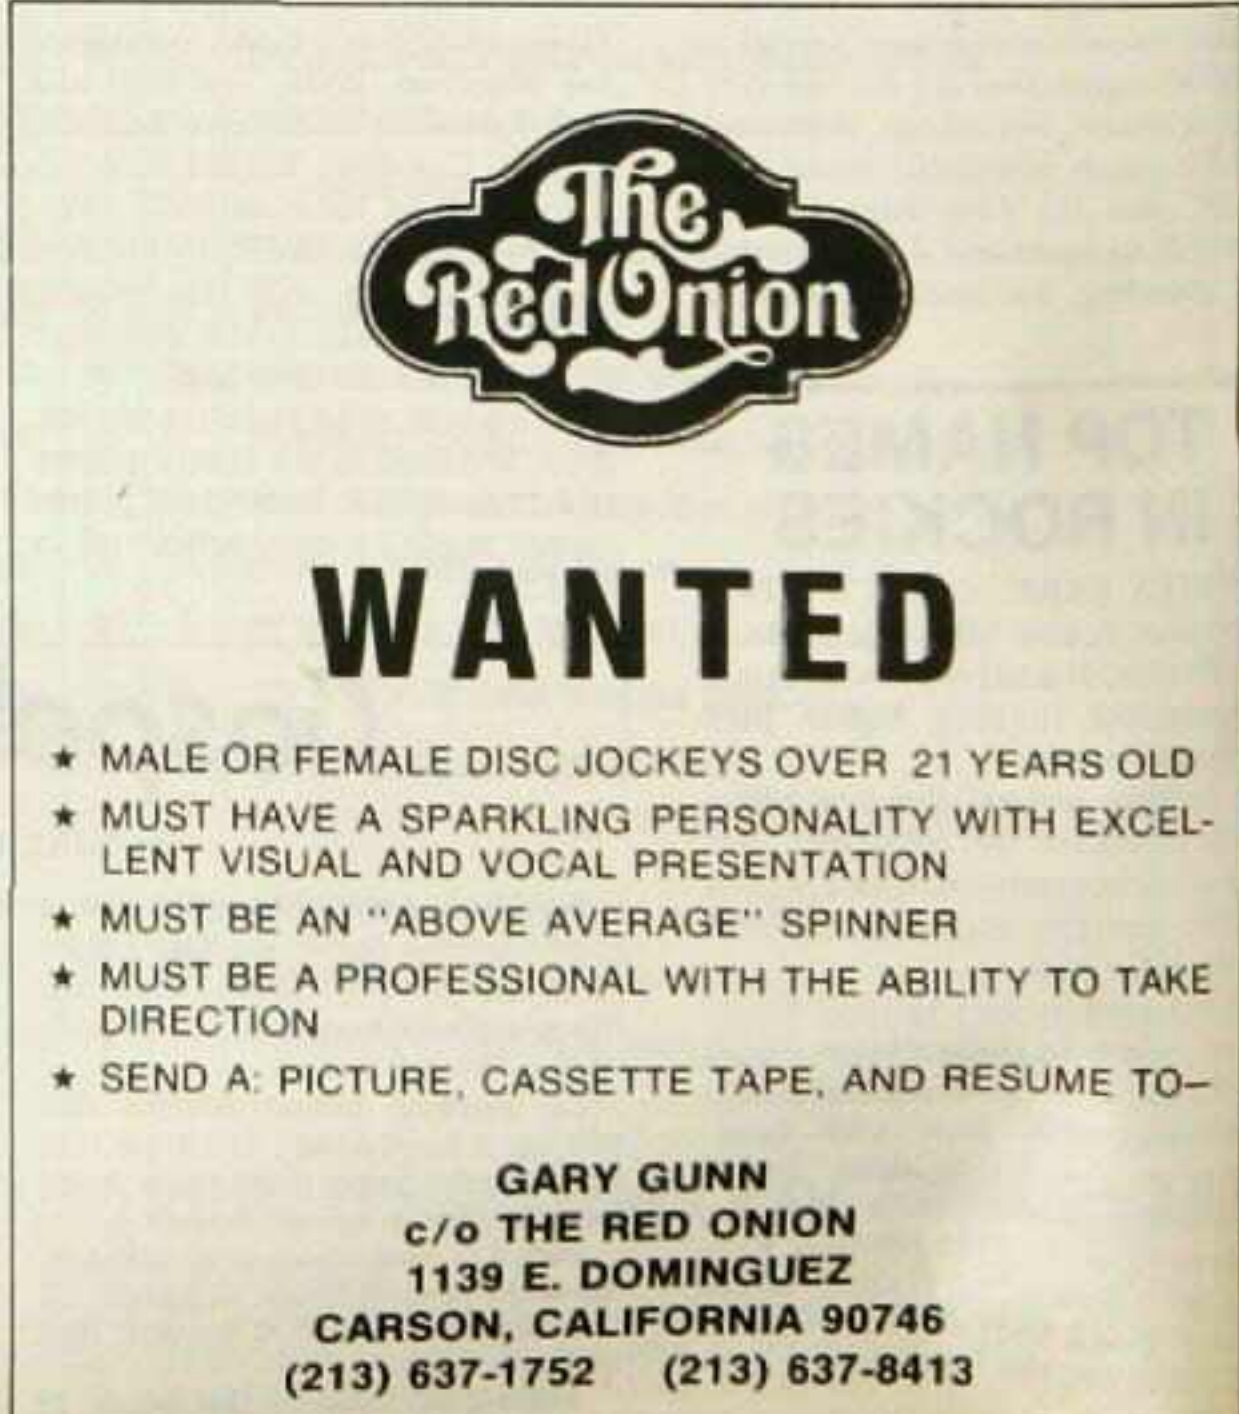 The
Red Onion
WANTED
★ MALE OR FEMALE DISC JOCKEYS OVER 21 YEARS OLD
★ MUST HAVE A SPARKLING PERSONALITY WITH EXCEL-
LENT VISUAL AND VOCAL PRESENTATION
★ MUST BE AN "ABOVE AVERAGE" SPINNER
★ MUST BE A PROFESSIONAL WITH THE ABILITY TO TAKE
DIRECTION
★ SEND A: PICTURE, CASSETTE TAPE, AND RESUME TO—
GARY GUNN
c/o THE RED ONION
1139 E. DOMINGUEZ
CARSON, CALIFORNIA 90746
(213) 637-1752 (213) 637-8413
TOP NAMES
IN ROCKIES